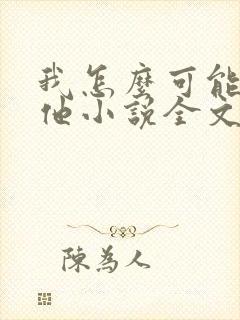 我怎麼可能
他小說全文
陳為人